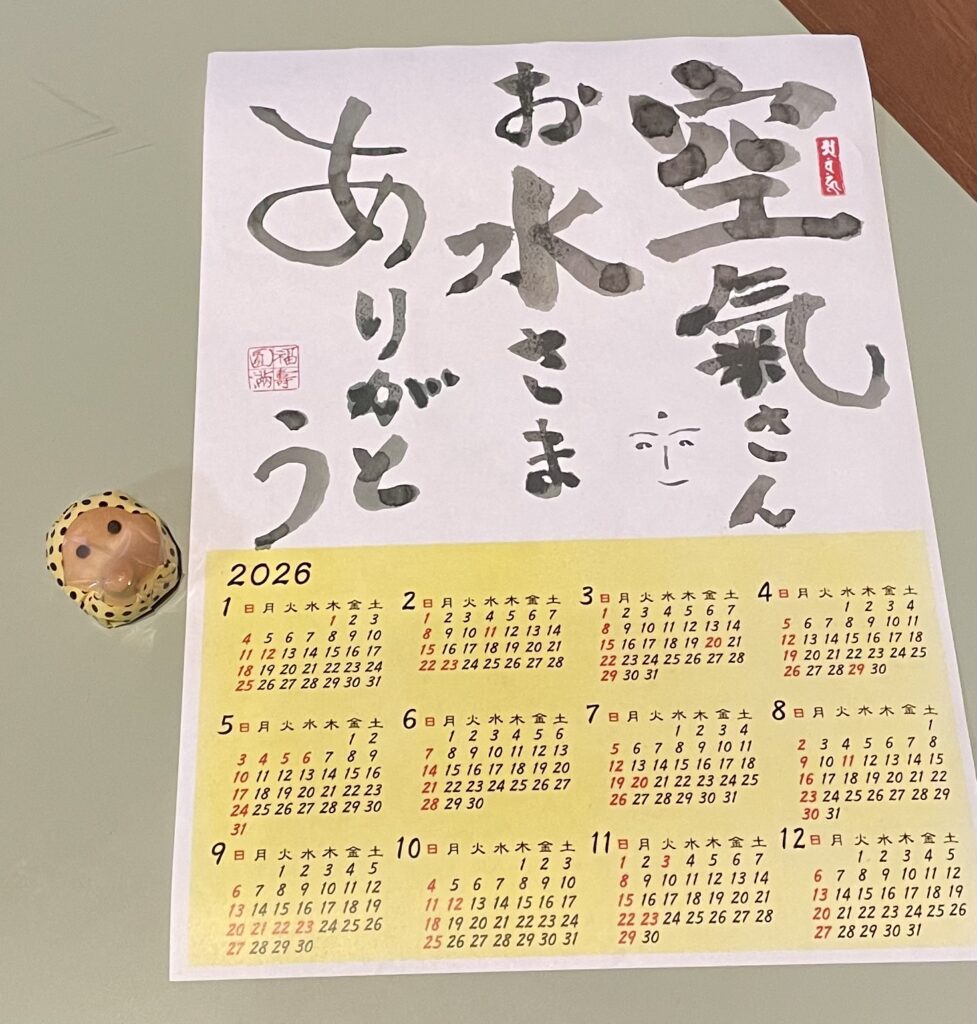 空氣さん
お水さま
ありがとう
福壽
円満
2026
1
日 月 火 水 木 金 土
1 2 3
4 5 6 7 8 9 10
11 12 13 14 15 16 17
18 19 20 21 22 23 24
25 26 27 28 29 30 31
2
日 月 火 水 木 金 土
1 2 3 4 5 6 7
8 9 10 11 12 13 14
15 16 17 18 19 20 21
22 23 24 25 26 27 28
3
日 月 火 水 木 金 土
1 2 3 4 5 6 7
8 9 10 11 12 13 14
15 16 17 18 19 20 21
22 23 24 25 26 27 28
29 30 31
4
日 月 火 水 木 金 土
1 2 3 4
5 6 7 8 9 10 11
12 13 14 15 16 17 18
19 20 21 22 23 24 25
26 27 28 29 30
5
日 月 火 水 木 金 土
1 2
3 4 5 6 7 8 9
10 11 12 13 14 15 16
17 18 19 20 21 22 23
24 25 26 27 28 29 30
31
6
日 月 火 水 木 金 土
1 2 3 4 5 6
7 8 9 10 11 12 13
14 15 16 17 18 19 20
21 22 23 24 25 26 27
28 29 30
7
日 月 火 水 木 金 土
1 2 3 4
5 6 7 8 9 10 11
12 13 14 15 16 17 18
19 20 21 22 23 24 25
26 27 28 29 30 31
8
日 月 火 水 木 金 土
1
2 3 4 5 6 7 8
9 10 11 12 13 14 15
16 17 18 19 20 21 22
23 24 25 26 27 28 29
30 31
9
日 月 火 水 木 金 土
1 2 3 4 5
6 7 8 9 10 11 12
13 14 15 16 17 18 19
20 21 22 23 24 25 26
27 28 29 30
10
日 月 火 水 木 金 土
1 2 3
4 5 6 7 8 9 10
11 12 13 14 15 16 17
18 19 20 21 22 23 24
25 26 27 28 29 30 31
11
日 月 火 水 木 金 土
1 2 3 4 5 6 7
8 9 10 11 12 13 14
15 16 17 18 19 20 21
22 23 24 25 26 27 28
29 30
12
日 月 火 水 木 金 土
1 2 3 4 5
6 7 8 9 10 11 12
13 14 15 16 17 18 19
20 21 22 23 24 25 26
27 28 29 30 31